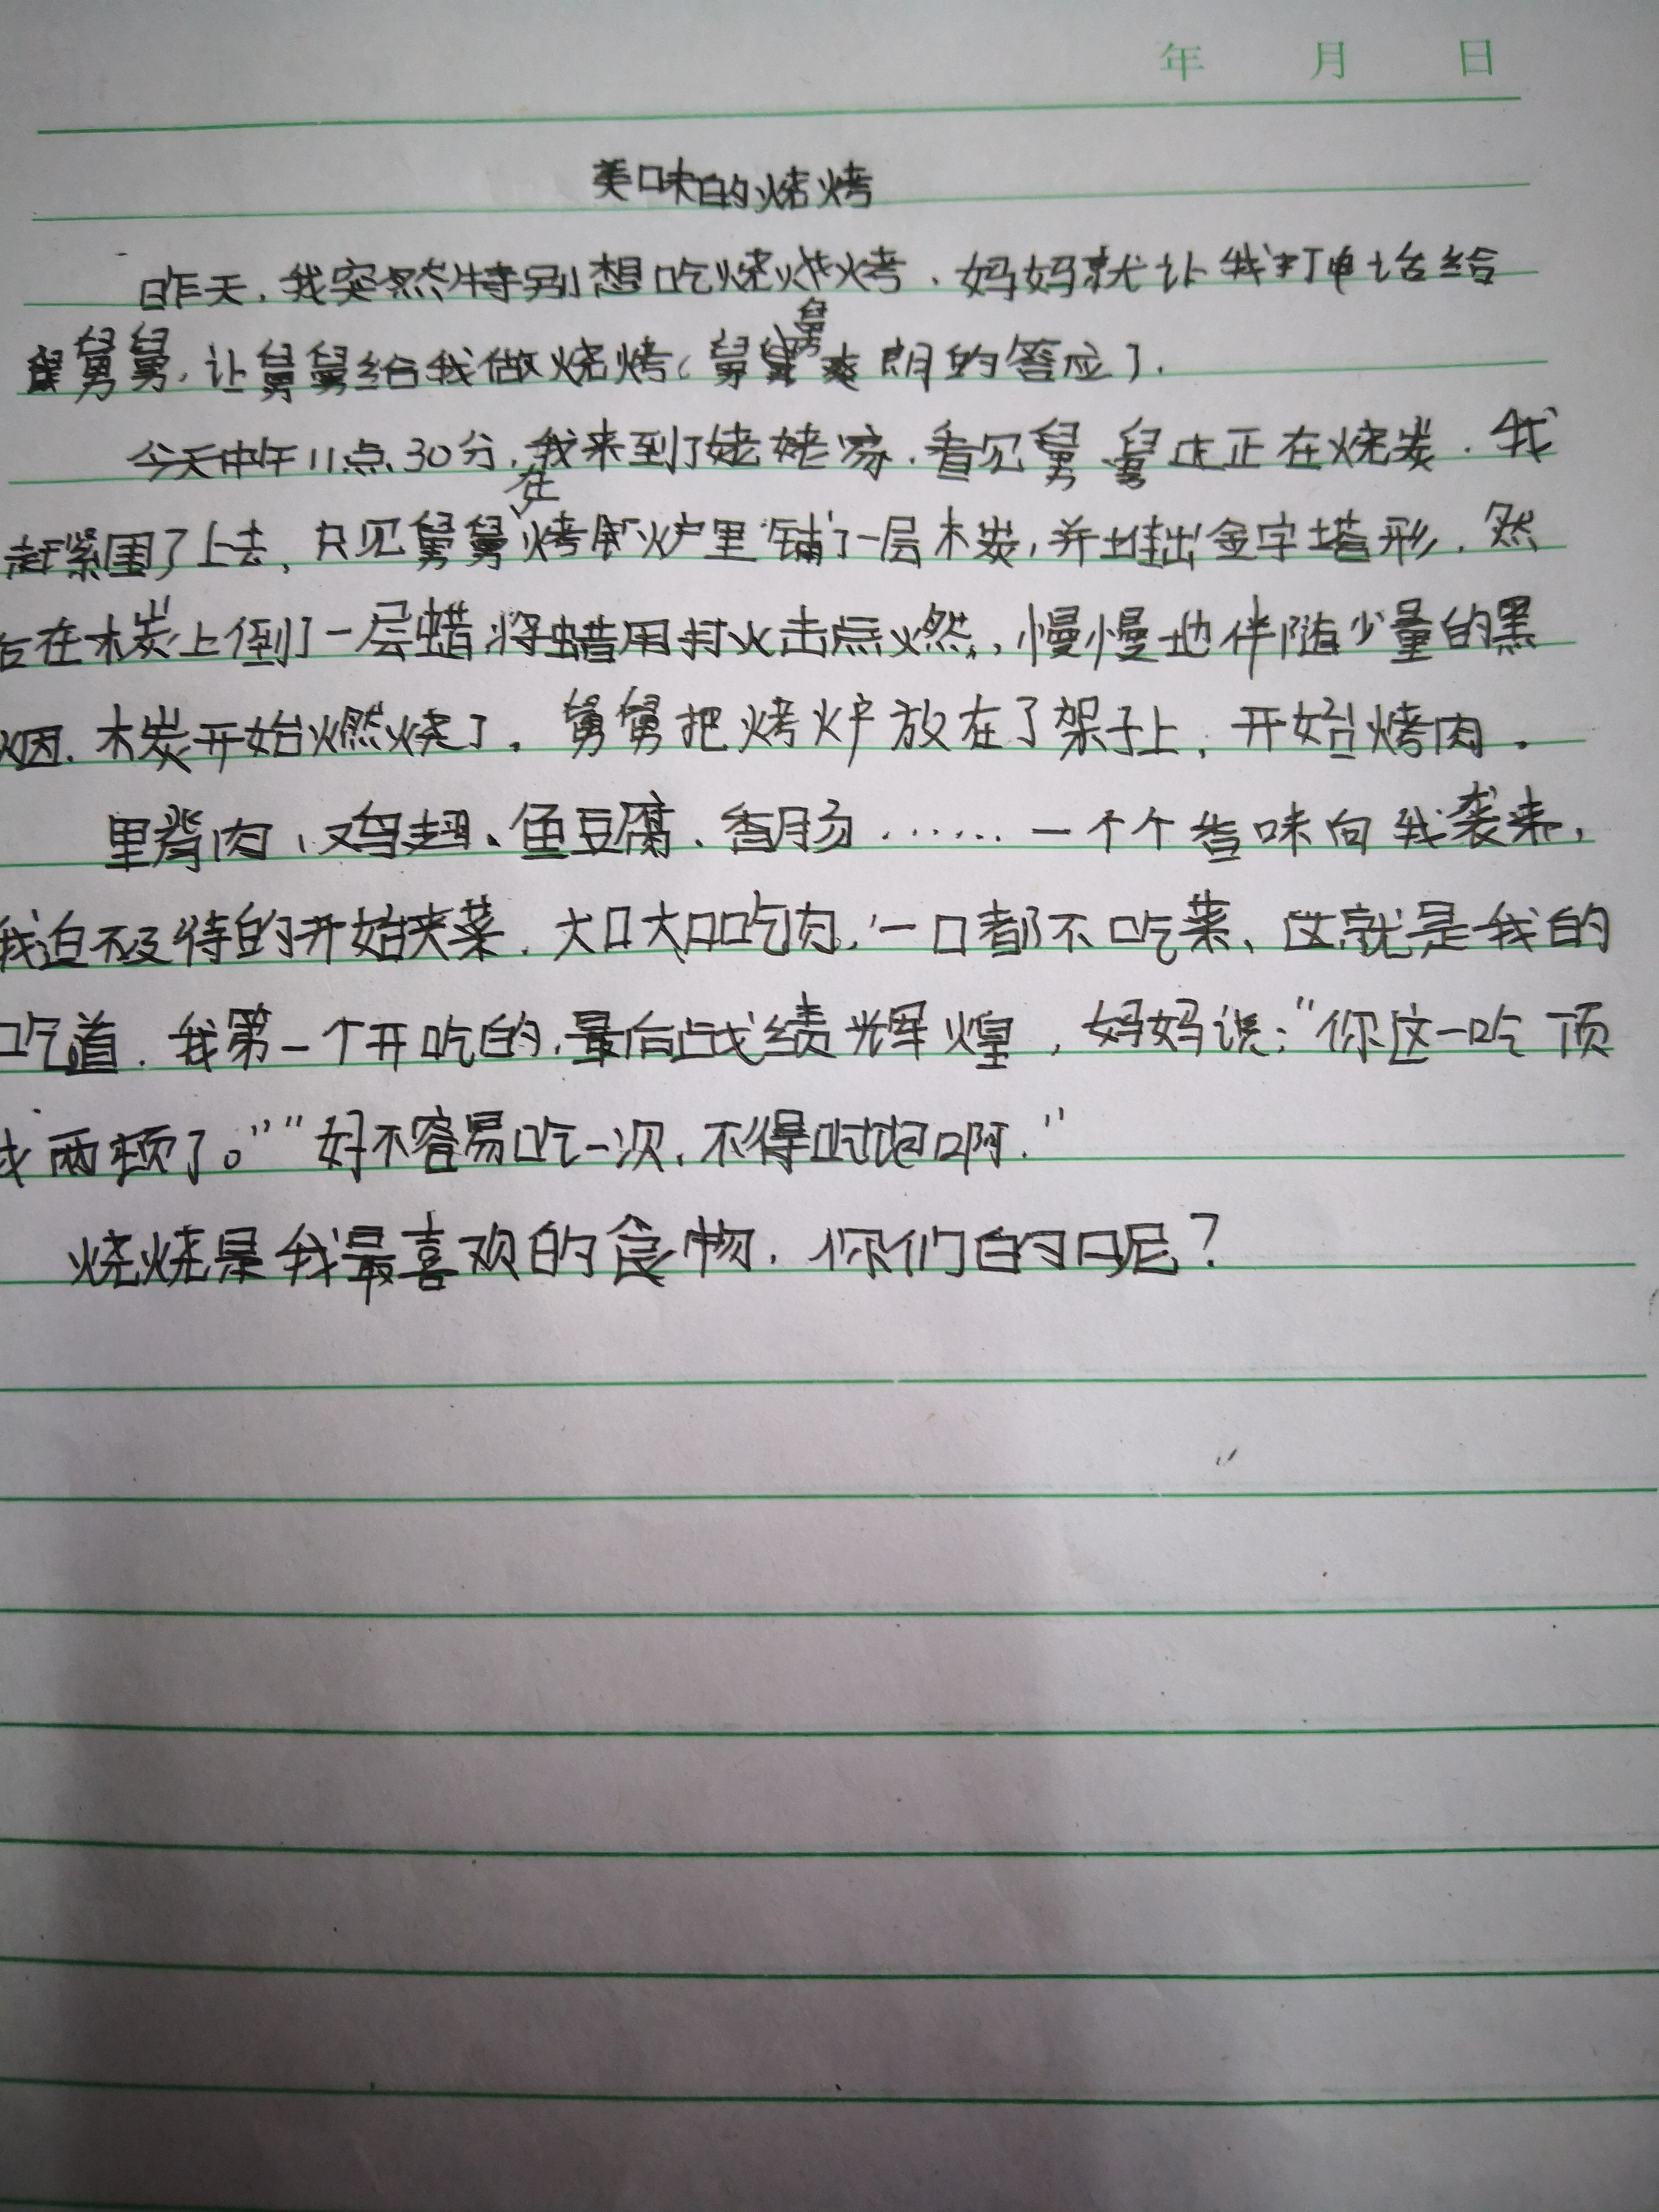 年 月 日
美味的烧烤
昨天，我突然特别想吃烧烤，妈妈就让我打电话给
舅舅，让舅舅给我做烧烤，舅舅爽朗的答应了.
今天中午11点30分，我来到了姥姥家，看见舅舅正在烧炭.我
赶紧围了上去，只见舅舅在烤炉里铺了一层木炭，并堆出金字塔形.然
后在木炭上倒了一层蜡，将蜡用打火击点燃，慢慢地伴随少量的黑
烟.木炭开始燃烧了。舅舅把烤炉放在了架子上，开始烤肉。
里脊肉、鸡翅、鱼豆腐、香肠……一个个香味向我袭来，
我迫不及待的开始夹菜.大口大口吃肉，一口都不吃菜、这就是我的
吃道.我第一个开吃的，最后战绩辉煌，妈妈说："你这一吃顶
我两顿了。""好不容易吃一次，不得吃饱啊."
烧烧是我最喜欢的食物，你们的呢？